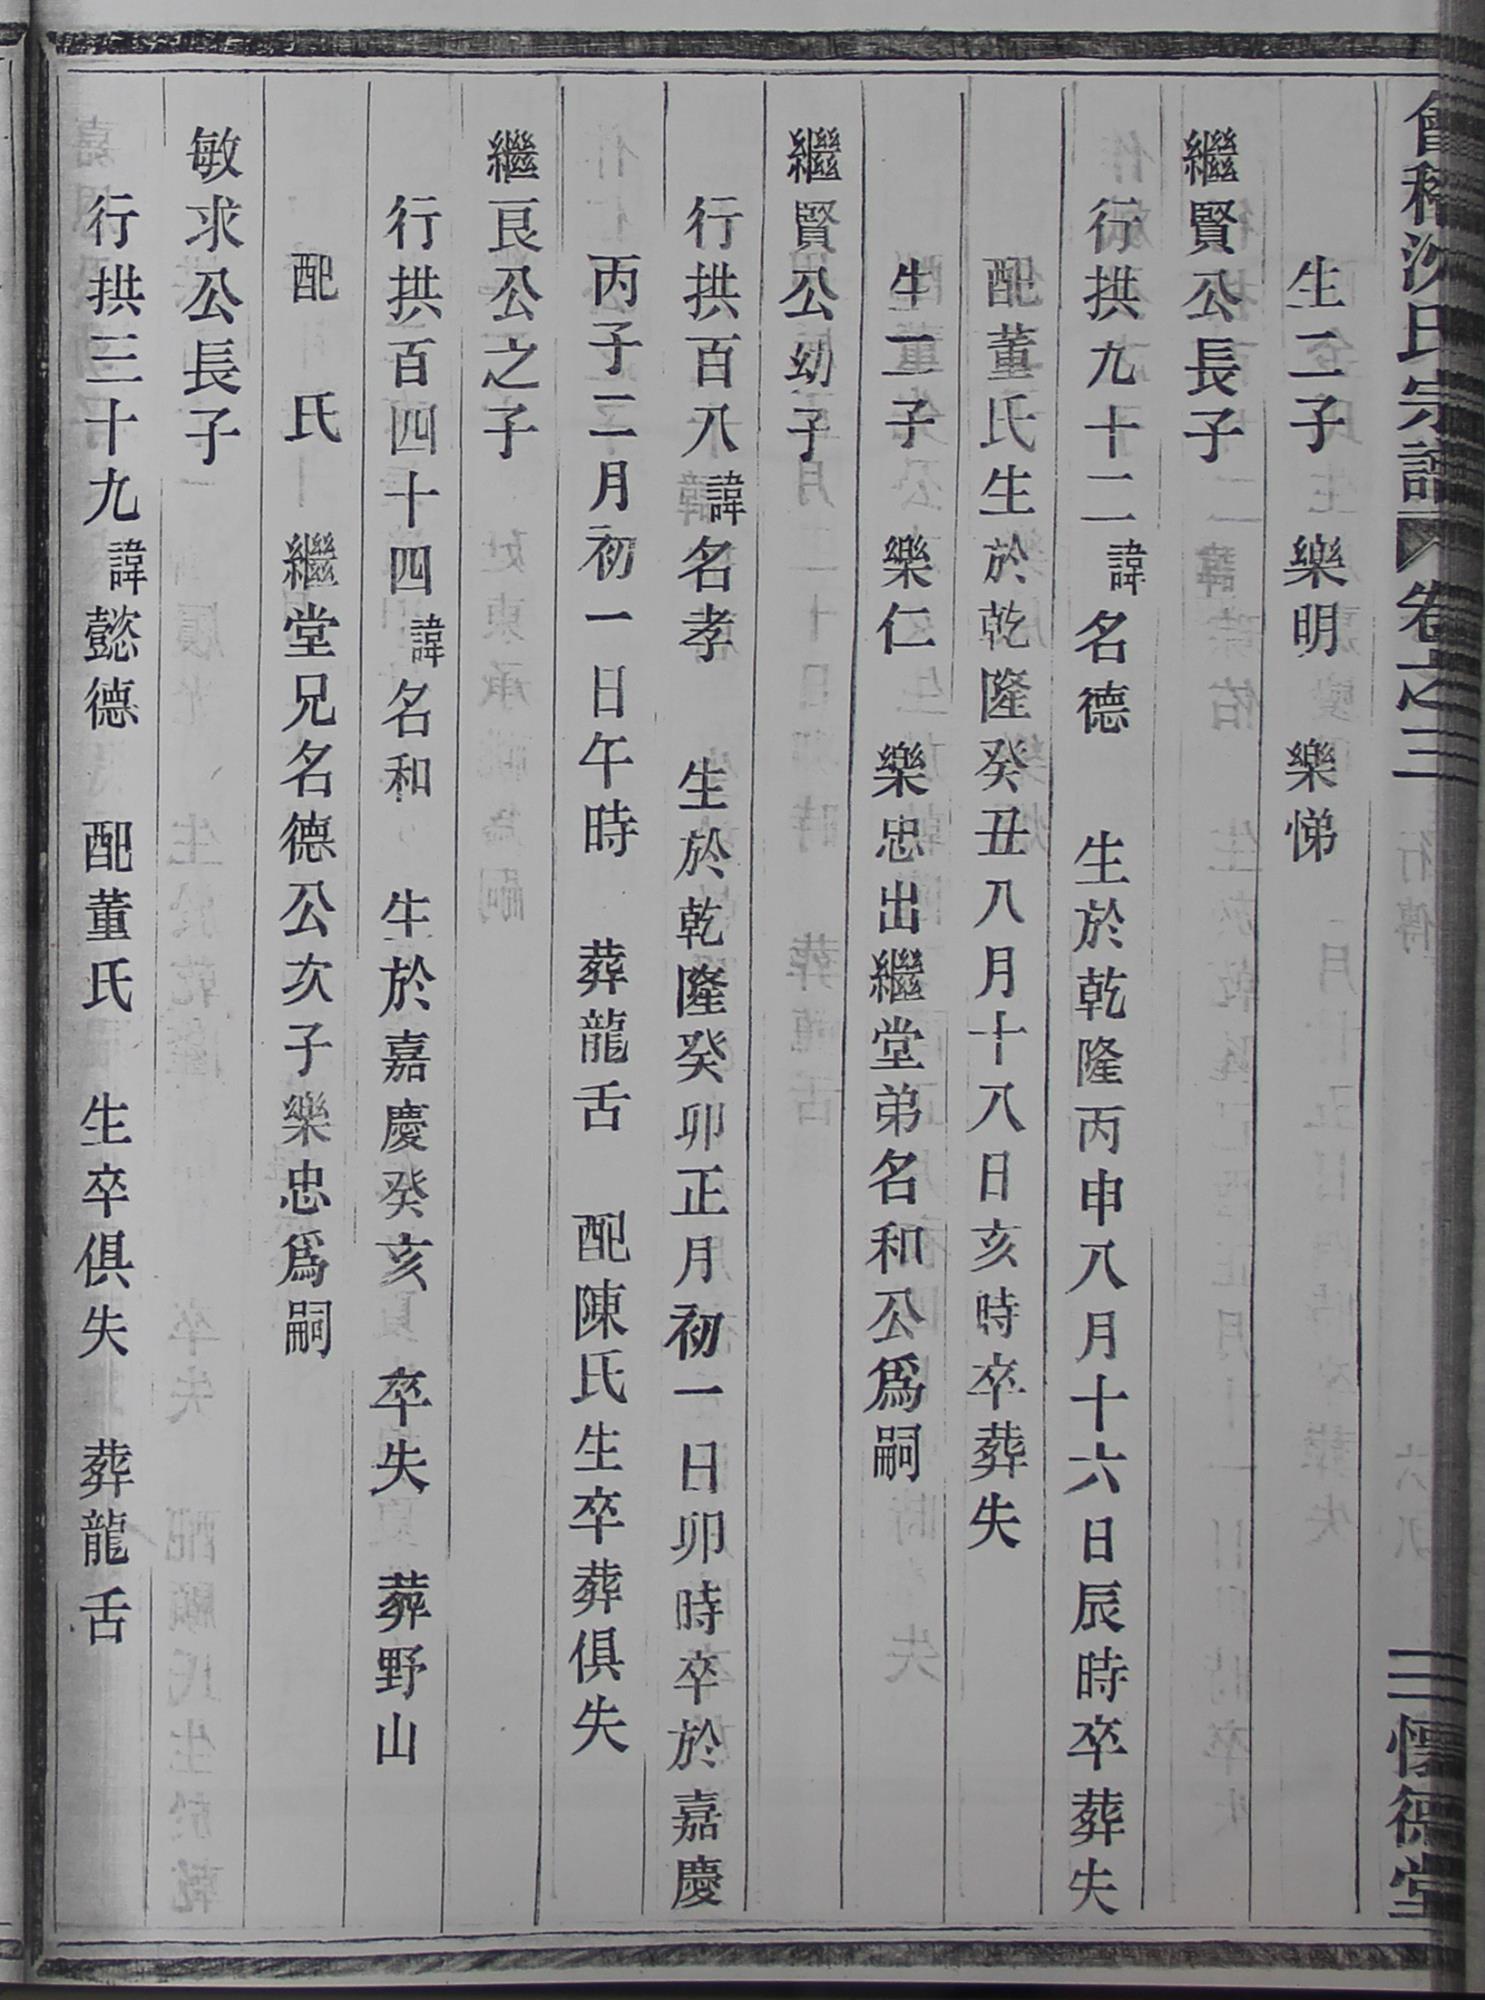 會稽沈氏宗譜 卷之三 二 懷德堂
生二子 樂明 樂悌
繼賢公長子
行拱九十二諱名德 生於乾隆丙申八月十六日辰時卒葬失
配董氏生於乾隆癸丑八月十八日亥時卒葬失
生二子 樂仁 樂忠出繼堂弟名和公爲嗣
繼賢公幼子
行拱百八諱名孝 生於乾隆癸卯正月初一日卯時卒於嘉慶
丙子二月初一日午時 葬龍舌 配陳氏生卒葬俱失
繼良公之子
行拱百四十四諱名和 生於嘉慶癸亥 卒失 葬野山
配 氏 繼堂兄名德公次子樂忠爲嗣
敏求公長子
行拱三十九諱懿德 配董氏 生卒俱失 葬龍舌